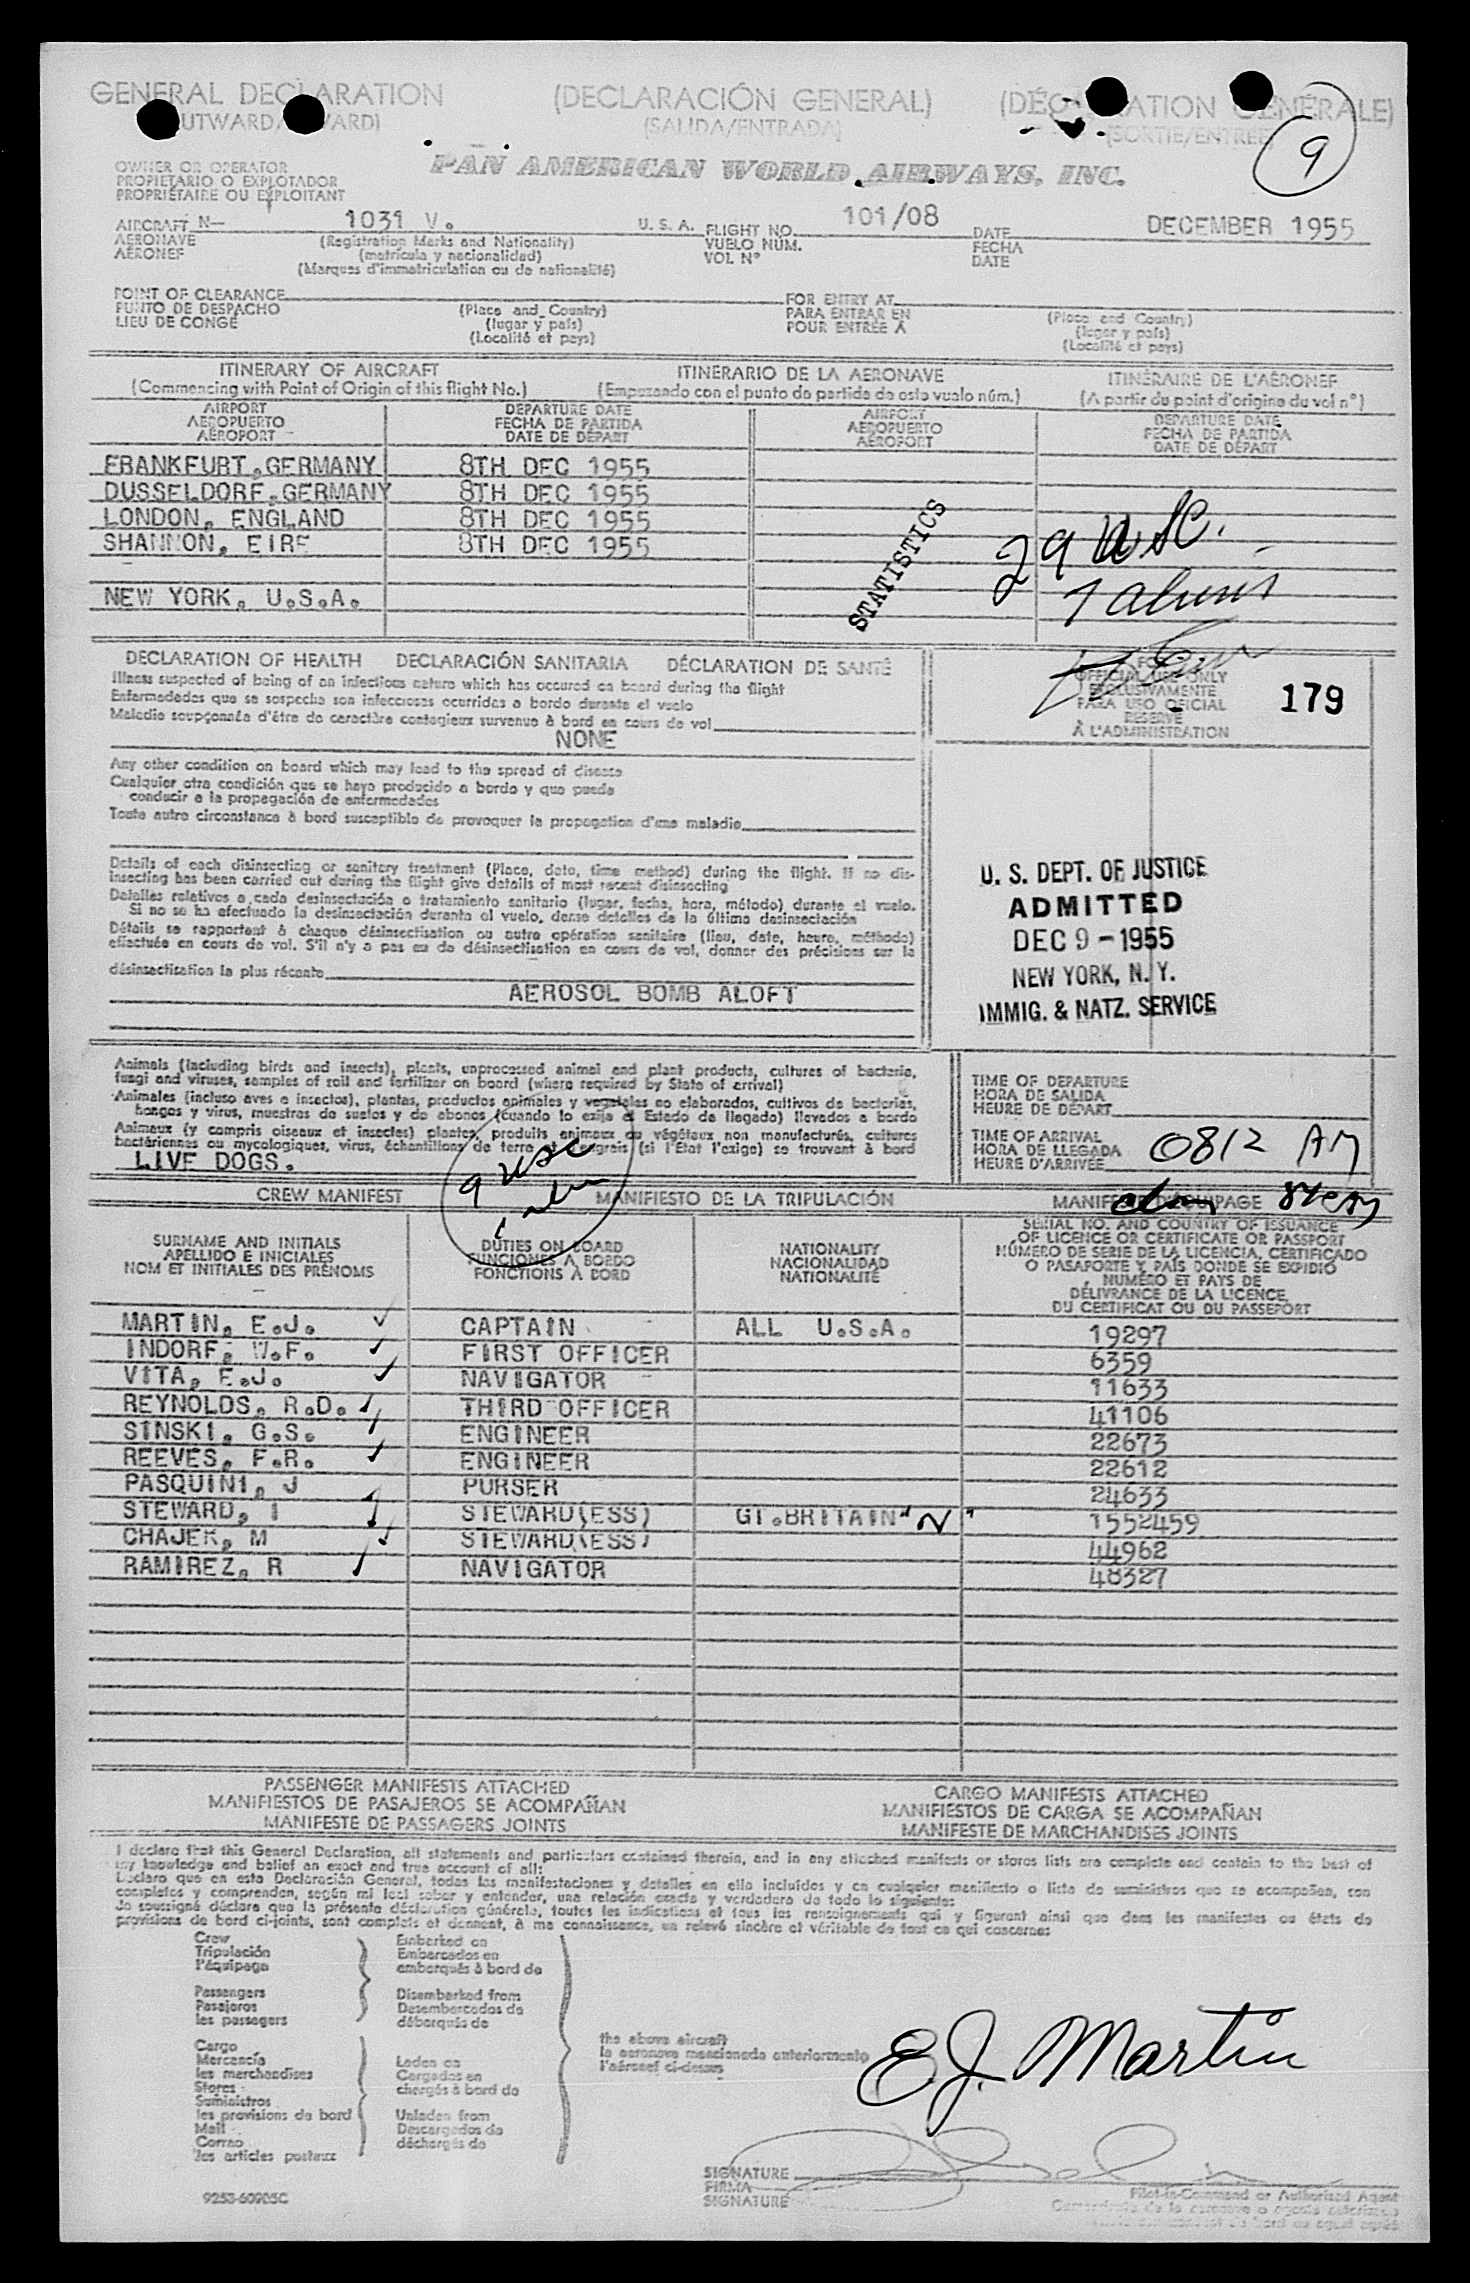 GENERAL DECLARATION (DECLARACIÓN GENERAL) (DÉCLARATION GÉNÉRALE)
(OUTWARD/INWARD) (SALIDA/ENTRADA) (SORTIE/ENTRÉE)
9
PAN AMERICAN WORLD AIRWAYS, INC.
OWNER OR OPERATOR
PROPIETARIO O EXPLOTADOR
PROPRIÉTAIRE OU EXPLOITANT
AIRCRAFT N- 1031 V. U.S.A. FLIGHT NO. 101/08 DATE DECEMBER 1955
AERONAVE (Registration Marks and Nationality) VUELO NÚM. FECHA
AÉRONEF (matrícula y nacionalidad) VOL Nº DATE
(Marques d'immatriculation ou de nationalité)
POINT OF CLEARANCE FOR ENTRY AT
PUNTO DE DESPACHO (Place and Country) PARA ENTRAR EN (Place and Country)
LIEU DE CONGÉ (lugar y país) POUR ENTRÉE À (lugar y país)
(Localité et pays) (Localité et pays)
ITINERARY OF AIRCRAFT ITINERARIO DE LA AERONAVE ITINÉRAIRE DE L'AÉRONEF
(Commencing with Point of Origin of this flight No.) (Empezando con el punto de partida de este vuelo núm.) (A partir du point d'origine du vol nº)
AIRPORT DEPARTURE DATE AIRPORT DEPARTURE DATE
AEROPUERTO FECHA DE PARTIDA AEROPUERTO FECHA DE PARTIDA
AÉROPORT DATE DE DÉPART AÉROPORT DATE DE DÉPART
FRANKFURT, GERMANY 8TH DEC 1955
DUSSELDORF, GERMANY 8TH DEC 1955
LONDON, ENGLAND 8TH DEC 1955
SHANNON, EIRE 8TH DEC 1955
NEW YORK, U.S.A.
STATISTICS
29 USC.
1 aliens
DECLARATION OF HEALTH DECLARACIÓN SANITARIA DÉCLARATION DE SANTÉ
Illness suspected of being of an infectious nature which has occured on board during the flight
Enfermedades que se sospecha son infecciosas ocurridas a bordo durante el vuelo
Maladie soupçonnée d'être de caractère contagieux survenue à bord en cours de vol
NONE
Any other condition on board which may lead to the spread of disease
Cualquier otra condición que se haya producido a bordo y que pueda
conducir a la propagación de enfermedades
Toute autre circonstance à bord susceptible de provoquer la propagation d'une maladie
Details of each disinsecting or sanitary treatment (Place, date, time method) during the flight. If no dis-
insecting has been carried out during the flight give details of most recent disinsecting
Detalles relativos a cada desinsectación o tratamiento sanitario (lugar, fecha, hora, método) durante el vuelo.
Si no se ha efectuado la desinsectación durante el vuelo, dense detalles de la última desinsectación
Détails se rapportant à chaque désinsectisation ou autre opération sanitaire (lieu, date, heure, méthode)
effectuée en cours de vol. S'il n'y a pas eu de désinsectisation en cours de vol, donner des précisions sur la
désinsectisation la plus récente
AEROSOL BOMB ALOFT
FOR
OFFICIAL USE ONLY
EXCLUSIVAMENTE
PARA USO OFICIAL
RESERVÉ
À L'ADMINISTRATION
179
U. S. DEPT. OF JUSTICE
ADMITTED
DEC 9 - 1955
NEW YORK, N. Y.
IMMIG. & NATZ. SERVICE
Animals (including birds and insects), plants, unprocessed animal and plant products, cultures of bacteria,
fungi and viruses, samples of soil and fertilizer on board (where required by State of arrival)
Animales (incluso aves e insectos), plantas, productos animales y vegetales no elaborados, cultivos de bacterias,
hongos y virus, muestras de suelos y de abonos (cuando lo exija el Estado de llegada) llevados a bordo
Animaux (y compris oiseaux et insectes) plantes, produits animaux ou végétaux non manufacturés, cultures
bactériennes ou mycologiques, virus, échantillons de terre et engrais (si l'Etat l'exige) se trouvant à bord
LIVE DOGS.
9 USC
TIME OF DEPARTURE
HORA DE SALIDA
HEURE DE DÉPART
TIME OF ARRIVAL
HORA DE LLEGADA
HEURE D'ARRIVÉE
0812 AM
CREW MANIFEST MANIFIESTO DE LA TRIPULACIÓN MANIFESTE D'ÉQUIPAGE
SURNAME AND INITIALS
APELLIDO E INICIALES
NOM ET INITIALES DES PRÉNOMS
DUTIES ON BOARD
FUNCIONES A BORDO
FONCTIONS À BORD
NATIONALITY
NACIONALIDAD
NATIONALITÉ
SERIAL NO. AND COUNTRY OF ISSUANCE
OF LICENCE OR CERTIFICATE OR PASSPORT
NÚMERO DE SERIE DE LA LICENCIA, CERTIFICADO
O PASAPORTE Y PAÍS DONDE SE EXPIDIÓ
NUMÉRO ET PAYS DE
DÉLIVRANCE DE LA LICENCE,
DU CERTIFICAT OU DU PASSEPORT
MARTIN, E.J. CAPTAIN ALL U.S.A. 19297
INDORF, W.F. FIRST OFFICER 6359
VITA, E.J. NAVIGATOR 11633
REYNOLDS, R.D. THIRD OFFICER 41106
SINSKI, G.S. ENGINEER 22673
REEVES, F.R. ENGINEER 22612
PASQUINI, J PURSER 24633
STEWARD, I STEWARD(ESS) GT.BRITAIN "N" 1552459
CHAJEK, M STEWARD(ESS) 44962
RAMIREZ, R NAVIGATOR 48327
PASSENGER MANIFESTS ATTACHED CARGO MANIFESTS ATTACHED
MANIFIESTOS DE PASAJEROS SE ACOMPAÑAN MANIFIESTOS DE CARGA SE ACOMPAÑAN
MANIFESTE DE PASSAGERS JOINTS MANIFESTE DE MARCHANDISES JOINTS
I declare that this General Declaration, all statements and particulars contained therein, and in any attached manifests or stores lists are complete and contain to the best of
my knowledge and belief an exact and true account of all:
Declaro que en esta Declaración General, todas las manifestaciones y detalles en ella incluídos y en cualquier manifiesto o lista de suministros que se acompañan, son
completos y comprenden, según mi leal saber y entender, una relación exacta y verdadera de todo lo siguiente:
Je soussigné déclare que la présente déclaration générale, toutes les indications et tous les renseignements qui y figurent ainsi que dans les manifestes ou états de
provisions de bord ci-joints, sont complets et donnent, à ma connaissance, un relevé sincère et véritable de tout ce qui concerne:
Crew Embarked on
Tripulación Embarcados en
l'équipage embarqués à bord de
Passengers Disembarked from
Pasajeros Desembarcados de
les passagers débarqués de
Cargo
Mercancía Laden on
les marchandises Cargados en
Stores chargés à bord de
Suministros
les provisions de bord Unladen from
Mail Descargados de
Correo déchargés de
les articles postaux
the above aircraft
la aeronave mencionada anteriormente
l'aéronef ci-dessus
E.J. Martin
SIGNATURE
FIRMA
SIGNATURE
Pilot-in-Command or Authorized Agent
9253-60905C